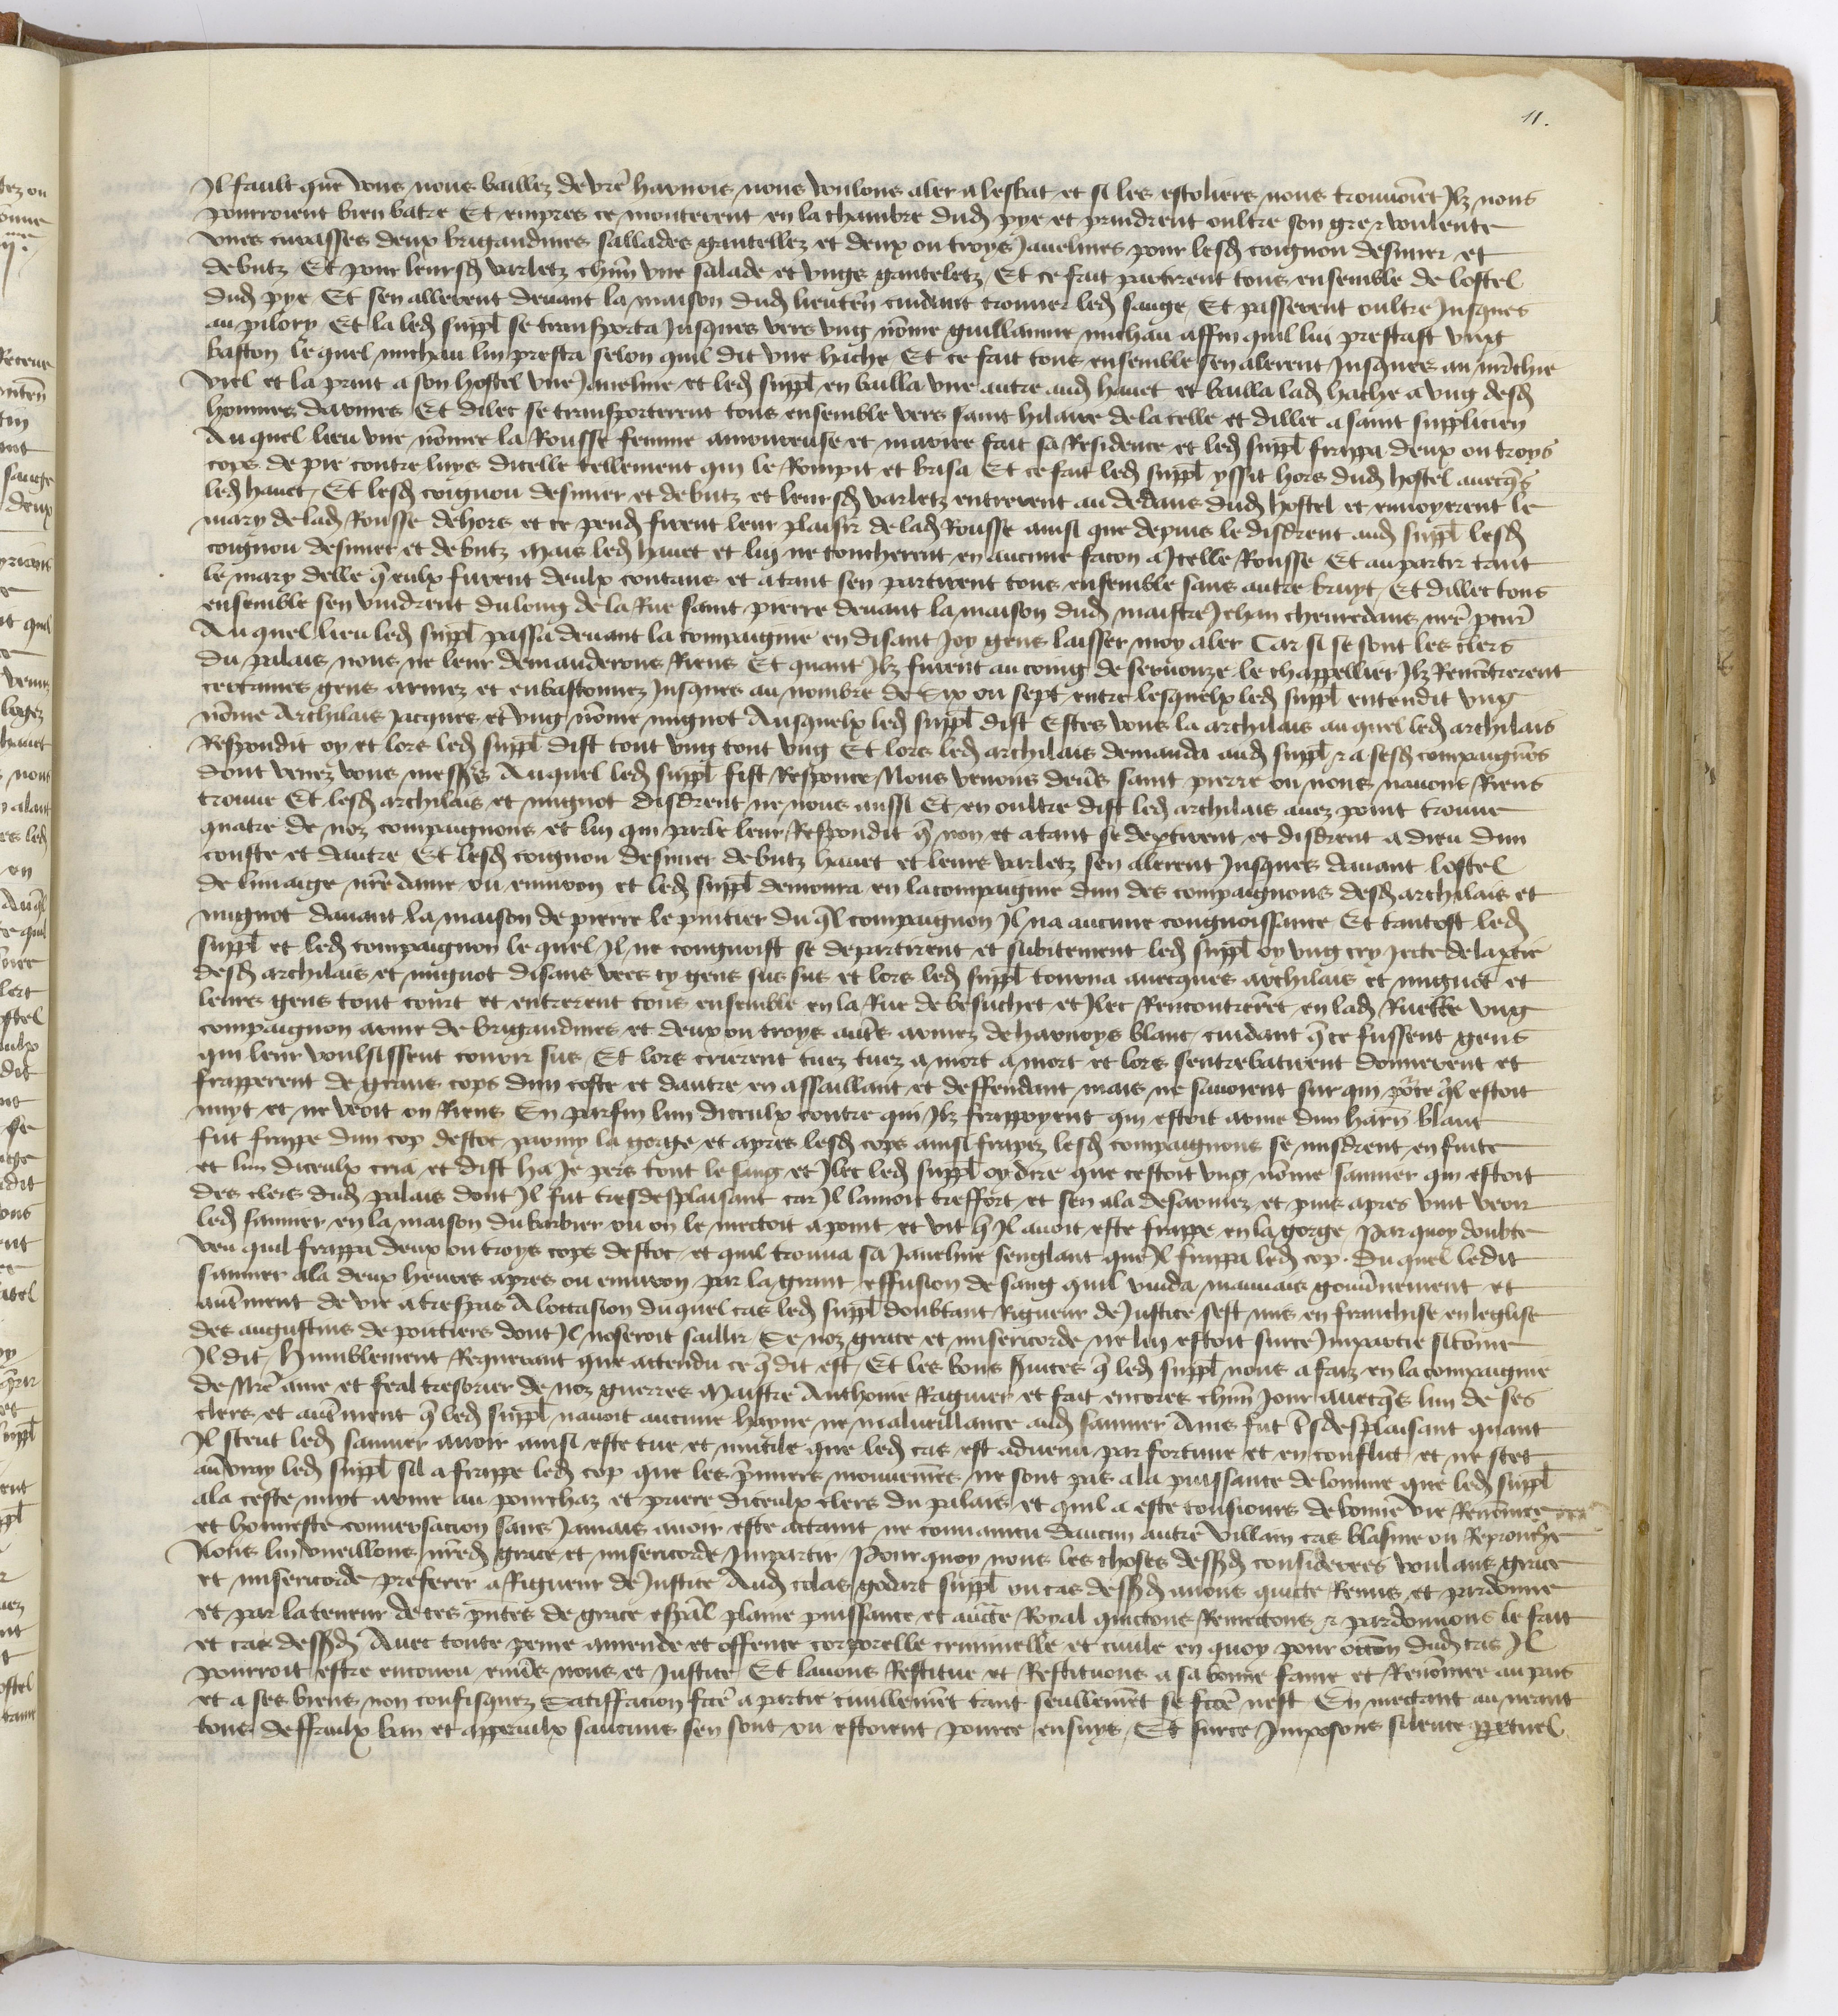 11.
Il fault que vous nous baillez de vre harnois nous voulons aler a lesbat et si les escoliers nous trouvoiet Ilz nous
pourroient bien batre Et empres ce monterent en la chambre dud pye et prindrent oultre son gre & voulente
unes curasses deux brigandines sallades gantellez et deux ou troys Javelines pour lesd coignou desmier et
de butz Et pour leursd varletz chun une salade et ungs ganteletz Et ce fait partirent tous ensemble de lostel
dud pye Et sen allerent devant la maison dud lieuten cuidant trouver led sauge Et passerent oultre Jusques
au pilory Et la led suppl se transporta Jusques vers ung nome guillaume michau affin quil lui prestast ung
baston lequel michau lui presta selon quil dit une hache Et ce fait tous ensemble sen alerent Jusques au mrchie
viel et la print a son hostel une Javeline et led suppl en bailla une autre aud havet et bailla lad hache a ung desd
hommes darmes Et dilec se transporterent tous ensemble vers saint hilaire de la celle et dillec a saint supplicien
Auquel lieu une nomee la Rousse femme amoureuse et mariee fait sa Residence et led suppl frapa deux ou troys
cops de pie contre luys dicelle tellement qui le Rompit et brisa Et ce fait led suppl yssit hors dud hostel avecqs
led havet Et lesd coignou desmier et de butz et leursd varletz entrerent au dedans dud hostel et envoyerent le
mary de lad Rousse dehors et ce pend firent leur plaisir de lad Rousse ainsi que depuis le disdrent aud suppl lesd
coignou desmier et de butz Mais led havet et lui ne toucherent en aucune facon a Icelle Rousse Et au partir tant
le mary delle q eulx furent deulx contans et atant sen partirent tous ensemble sans autre bruyt Et dillec tous
ensemble sen vindrent du long de la Rue saint pierre devant la maison dud maistre Jehan chevredans nre pcur
Auquel lieu led suppl passa devant la compaignie en disant Joy gens laisser moy aler Car si se sont les clers
du palais nous ne leur demanderons Riens Et quant Ilz furent au coing de servonze le chappellier Ilz Rencotrerent
certaines gens armez et enbastonnez Jusques au nombre de six ou sept entre lesquelx led suppl entendit ung
nome Archilais Jacques et ung nome mignot Ausquelx led suppl dist Estes vous la archilais auquel led archilais
Respondit oy et lors led suppl dist tout ung tout ung Et lors led archilais demanda aud suppl & a sesd compaignos
dont venez vous messrs Auquel led suppl fist Responce Nous venons devs saint pierre ou nous navons Riens
trouve Et lesd archilais et mignot disdrent ne nous aussi Et en oultre dist led archilais avez point trouve
quatre de noz compaignons et lui qui parle leur Respondit q non et atant se deptirent et disdrent a dieu dun
couste et dautre Et lesd coignou desmier de butz havet et leurs varletz sen alerent Jusques davant lostel
de limaige nre dame ou environ et led suppl demoura en la compaignie dun des compaignons desd archilais et
mignot davant la maison de pierre le pintier du ql compaignon Il na aucune congnoissance Et tantost led
suppl et led compaignon lequel Il ne congnoist se departirent et subitement led suppl oy ung cry Jecte de la ptie
desd archilais et mignot disans vees cy gens sus sus et lors led suppl tourna avecques archilais et mignot et
leurs gens tout court et entrerent tous ensemble en la Rue de besuchet et Ilec Rencontreret en lad Ruette ung
compaignon arme de brigandines et deux ou troys autrs armez de harnoys blanc cuidant q ce fussent gens
qui leur voulsissent courir sus Et lors crierent tuez tuez a mort a mort et lors sentrebatirent donnerent et
frapperent de grans cops dun coste et dautre en assaillant et deffendant mais ne savoient sur qui porce ql estoit
nuyt et ne veoit on Riens En parfin lun diceulx contre qui Ilz frappoyent qui estoit arme dun harn blanc
fut frappe dun cop destoc parmy la gorge et apres lesd cops ainsi frapez lesd compaignons se misdrent en fuite
et lun diceulx cria et dist ha Je pers tout le sang et Ilec led suppl oy dire que cestoit ung nome saunier qui estoit
des clers dud palais dont Il fut tresdesplaisant car Il lamoit treffort et sen ala desarmez et puis apres vint veoir
led saunier en la maison du barbier ou on le mectoit a point et vit q Il avoit este frappe en la gorge Par quoy doubte
veu quil frappa deux ou troys cops destoc et quil trouva sa Javeline senglant que Il frappa led cop Du quel ledit
saunier ala deux heures apres ou environ par la grant effusion de sang quil vuida mauvais gouvnement et
autment de vie a trespas A loccasion du quel cas led suppl doubtant Rigueur de Justice sest mis en franchise en leglise
des augustins de poictiers dont Il noseroit saillir Se noz grace et misericorde ne lui estoit surce Impartie si come
Il dit Humblement Requerant que actendu ce q dit est Et les bons svices q led suppl nous a faiz en la compaignie
de Nre ame et feal tresorier de noz guerres Maistre Anthoine Raguier et fait encores chun Jour avecqs lun de ses
clers et autment q led suppl navoit aucune hayne ne malveillance aud saunier Ains fut tsdesplaisant quant
Il sceut led saunier avoir ainsi este tue et mutile que led cas est advenu par fortune et en conflict et ne scet
au vray led suppl sil a frappe led cop que les pmiers mouvemes ne sont pas a la puissance de lomme que led suppl
ala ceste nuyt arme au pourchaz et priere diceulx clers du palais et quil a este tousiours de bonne vie Renomee
et honneste conversacion sans Jamais avoir este actaint ne convaincu daucun autre villain cas blasme ou Reprouche
Nous lui vueillons nred grace et misericorde Impartir Pourquoy nous les choses dessusd considerees voulans grace
et misericorde preferer a Rigueur de Justice Aud colas godart suppl ou cas dessusd avons quicte Remis et pardonne
et par la teneur de ces pntes de grace espal plaine puissance et aucte Royal quictons Remectons & pardonnons le fait
et cas dessusd Avec toute peine amende et offence corporelle criminelle et civile en quoy pour occon dud cas Il
pourroit estre encouru envs nous et Justice Et lavons Restitue et Restituons a sa bonne fame et Renomee au pais
et a ses biens non confisquez Satiffacion fcte a partie civillemet tant seullemet se fcte nest En mectant au neant
tous deffaulx ban et appeaulx saucuns sen sont ou estoient pource ensuys Et surce Imposons silence perpetuel